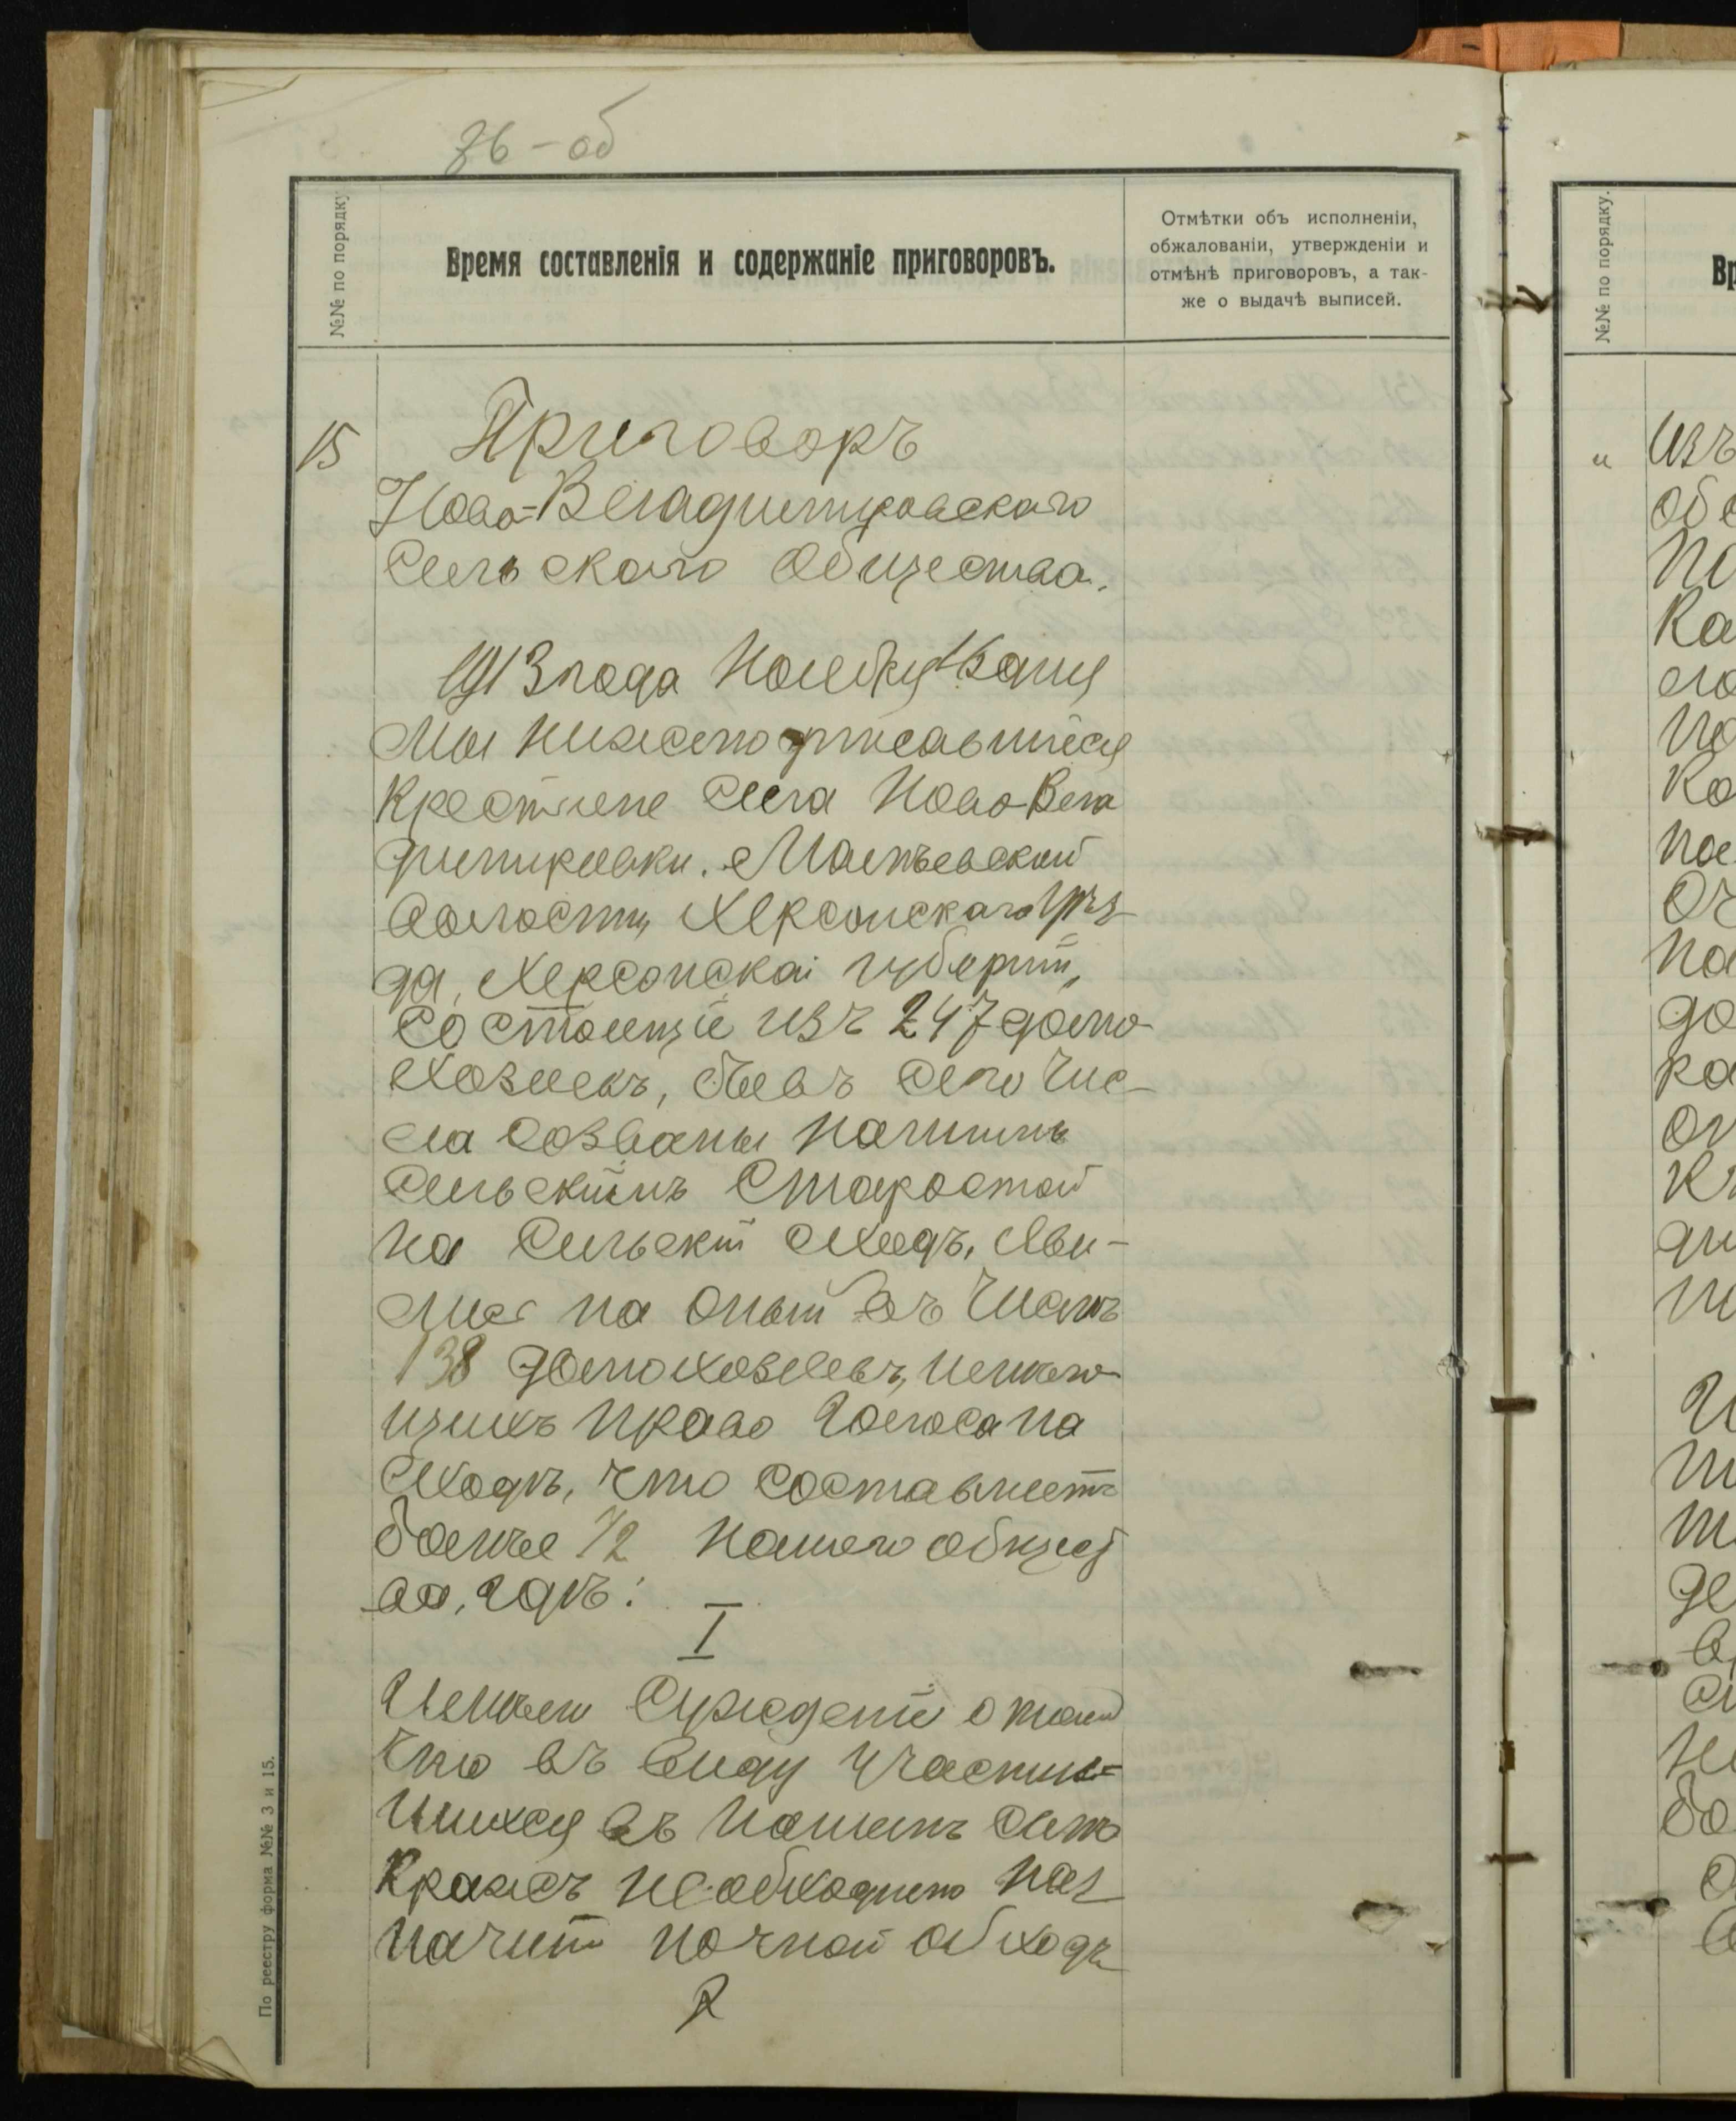 76-об
№№ по порядку
Время составленія и содержаніе приговоровъ.
Отмѣтки объ исполненіи,
обжалованіи, утвержденіи и
отмѣнѣ приговоровъ, а так-
же о выдачѣ выписей.
15
Приговоръ
Ново=Владимировскаго
Сельскаго Общества.
1913 года Ноября дня
Мы нижеподписавшіеся
Крестьяне Села Ново-Вла
димировки.
волости, Херсонскаго Уѣз-
да, Херсонской губерніи,
состоящіе изъ 247 домо-
хозяевъ, бывъ сего чис-
ла созваны нашимъ
Сельскимъ Старостой
на Сельскій сходъ, яви-
лись на оный въ числѣ
138 домохозяевъ, имѣю-
щихъ право голоса на
сходѣ, что составляетъ
болѣе 1/2 нашего общест
ва, гдѣ:
I
Имѣли Сужденіе о томъ
что въ виду участив=
шихся въ нашемъ селѣ
Кражъ необходимо наз
начить ночной обходъ
По реестру форма №№ 3 и 15.
№№ по порядку.
Вр
"
Изъ